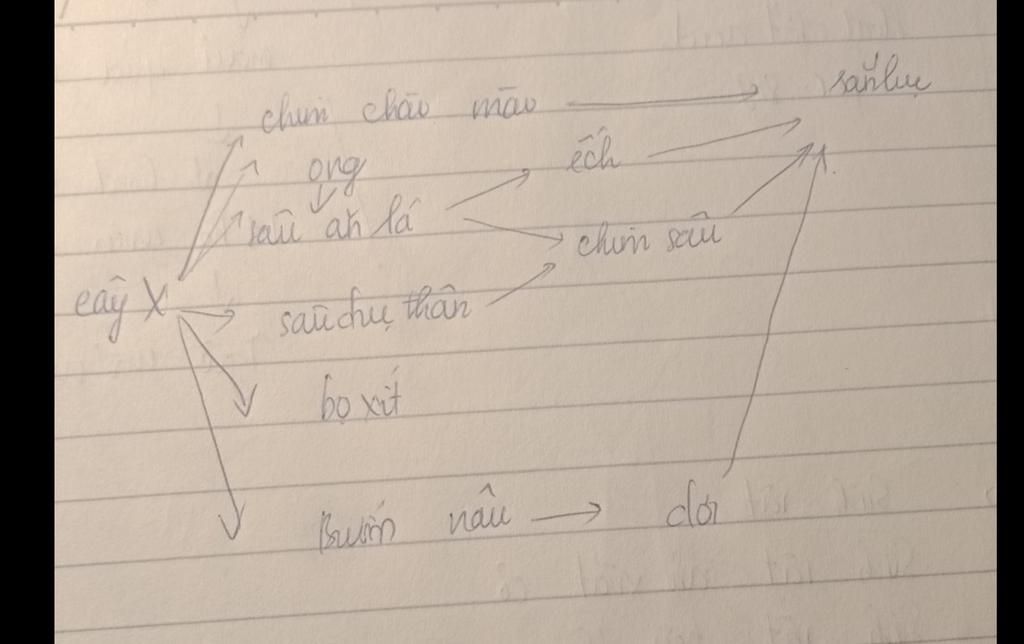 chim chào mào săn luc
ong ếch
sâu ăn lá
chim sâu
cây X
sâu đục thân
bọ xít
Bướm nâu dơi